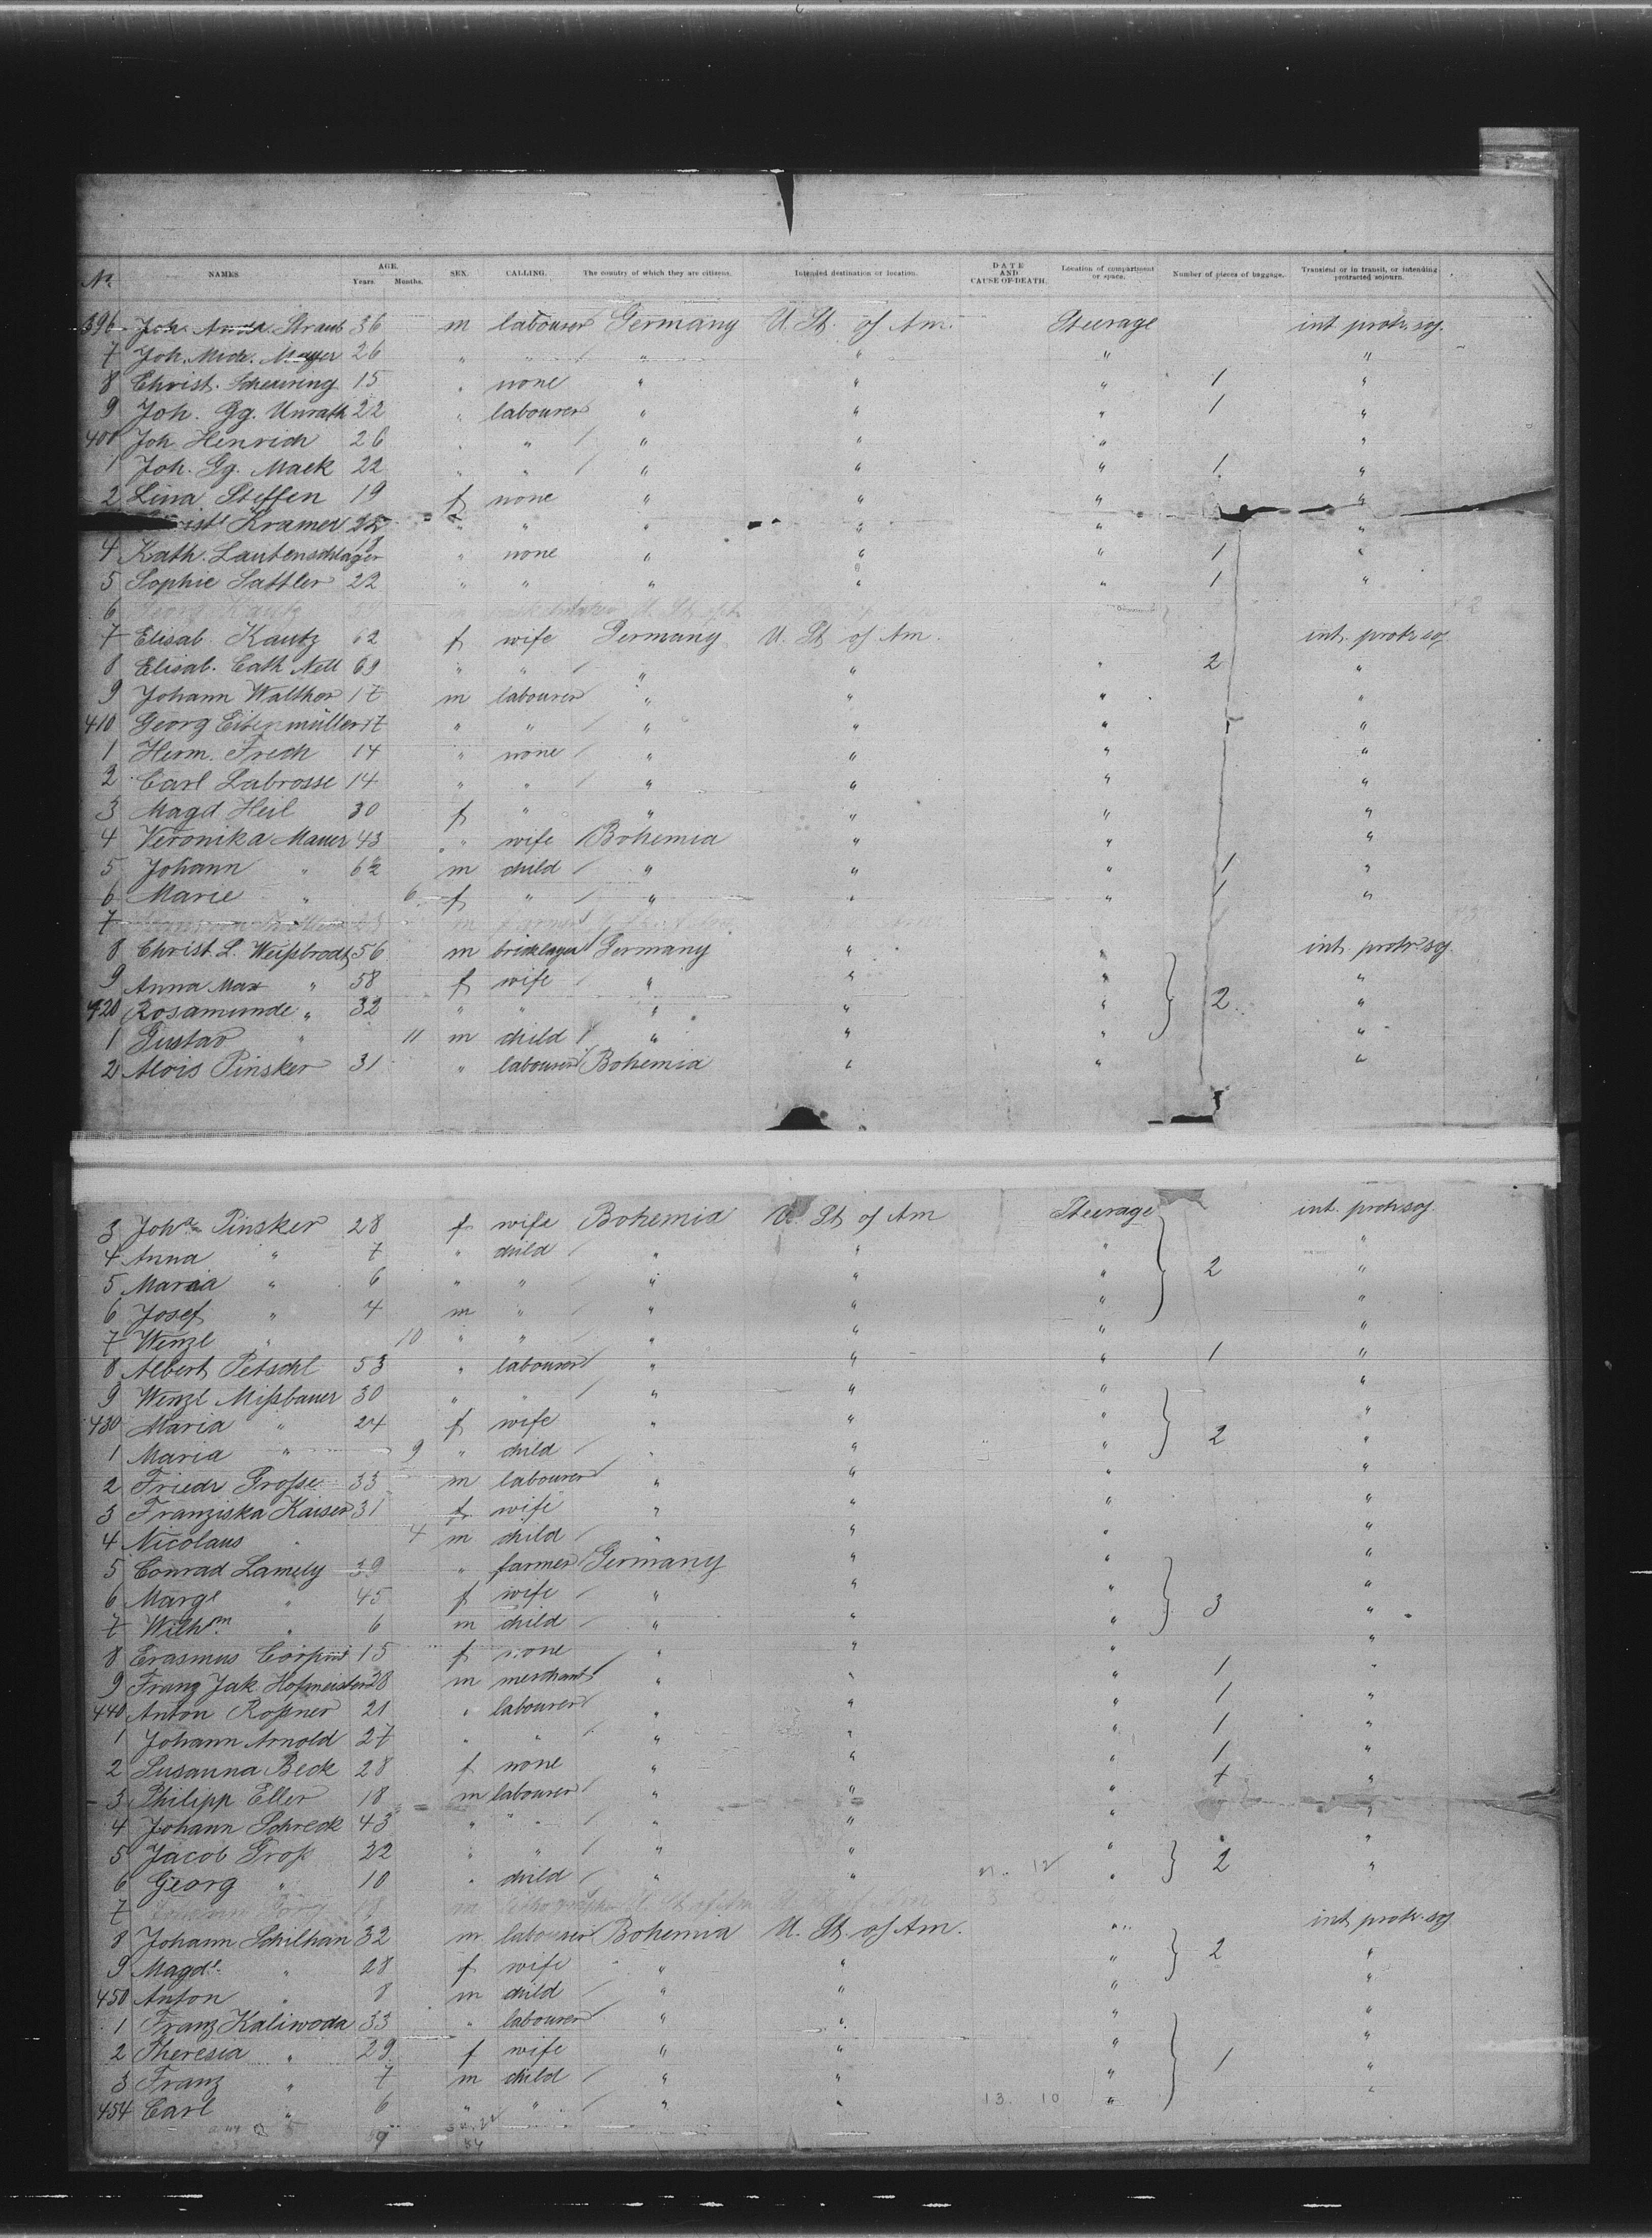 No. NAMES. AGE. Years. Months. SEX. CALLING. The country of which they are citizens. Intended destination or location. DATE AND CAUSE OF DEATH. Location of compartment or space. Number of pieces of baggage. Transient or in transit, or intending protracted sojourn.
396 Joh. Andr. Straub 36 m labourer Germany U. St. of Am. Steerage int. protr. soj.
7 Joh. Mich. Mayer 26 " " " " " "
8 Christ. Scheuring 15 " none " " " 1 "
9 Joh. Gg. Unrath 22 " labourer " " " 1 "
400 Joh. Henrich 26 " " " " " "
1 Joh. Gg. Mack 22 " " " " " 1 "
2 Lina Steffen 19 f none " " " "
Kramer " " " " " "
4 Kath. Lautenschlager " none " " " 1 "
5 Sophie Sattler 22 " " " " " 1 "
6
7 Elisab. Kautz 62 f wife Germany U. St. of Am. int. protr. soj.
8 Elisab. Cath Nell 69 " " " " " 2 "
9 Johann Walther 17 m labourer " " " "
410 Georg Eisenmüller 17 " " " " " 1 "
1 Herm. Frech 14 " none " " " "
2 Carl Labrosse 14 " " " " " "
3 Magd Heil 30 f " " " " "
4 Veronika Mauer 43 " wife Bohemia " " "
5 Johann " m child " " " 1 "
6 Marie " 6 f " " " " 1 "
7
8 Christ. L. Weißbrodt 56 m bricklayer Germany " " int. protr. soj.
9 Anna Mar " 58 f wife " " " "
420 Rosamunde " 32 " " " " " 2 "
1 Gustav " 11 m child " " " "
2 Alois Pinsker 31 " labourer Bohemia " " "
3 Joha Pinsker 28 f wife Bohemia U. St. of Am Steerage int. protr. soj.
4 Anna " 7 " child " " " "
5 Maria " 6 " " " " " 2 "
6 Josef " 4 m " " " " "
7 Wenzl " 10 " " " " " "
8 Albert Petschl 53 " labourer " " " 1 "
9 Wenzl Mißbauer 30 " " " " " "
430 Maria " 24 f wife " " " "
1 Maria " 9 " child " " " 2 "
2 Friedr Grosse 33 m labourer " " " "
3 Franziska Kaiser 31 f wife " " " "
4 Nicolaus " 4 m child " " " "
5 Conrad Lamely 39 " farmer Germany " " "
6 Margt " 45 f wife " " " 3 "
7 Wilhm " 6 m child " " " "
8 Erasmus 15 f none " " "
9 Franz Jak. Hofmeister 28 m merchant " " " 1 "
440 Anton Roßner 21 " labourer " " " 1 "
1 Johann Arnold 27 " " " " " 1 "
2 Susanna Beck 28 f none " " " 1 "
3 Philipp Eller 18 m labourer " " " 1 "
4 Johann Schreck 43 " " " " " "
5 Jacob Groß 22 " " " " " 2 "
6 Georg " 10 " child " " " "
7
8 Johann Schilhan 32 m labourer Bohemia U. St. of Am. " int. protr. soj.
9 Magdt. " 28 f wife " " " 2 "
450 Anton " 8 m child " " " "
1 Franz Kaliwoda 33 " labourer " " " "
2 Theresia " 29 f wife " " " "
3 Franz " 7 m child " " " 1 "
454 Carl " 6 " " " " 13. 10 " "